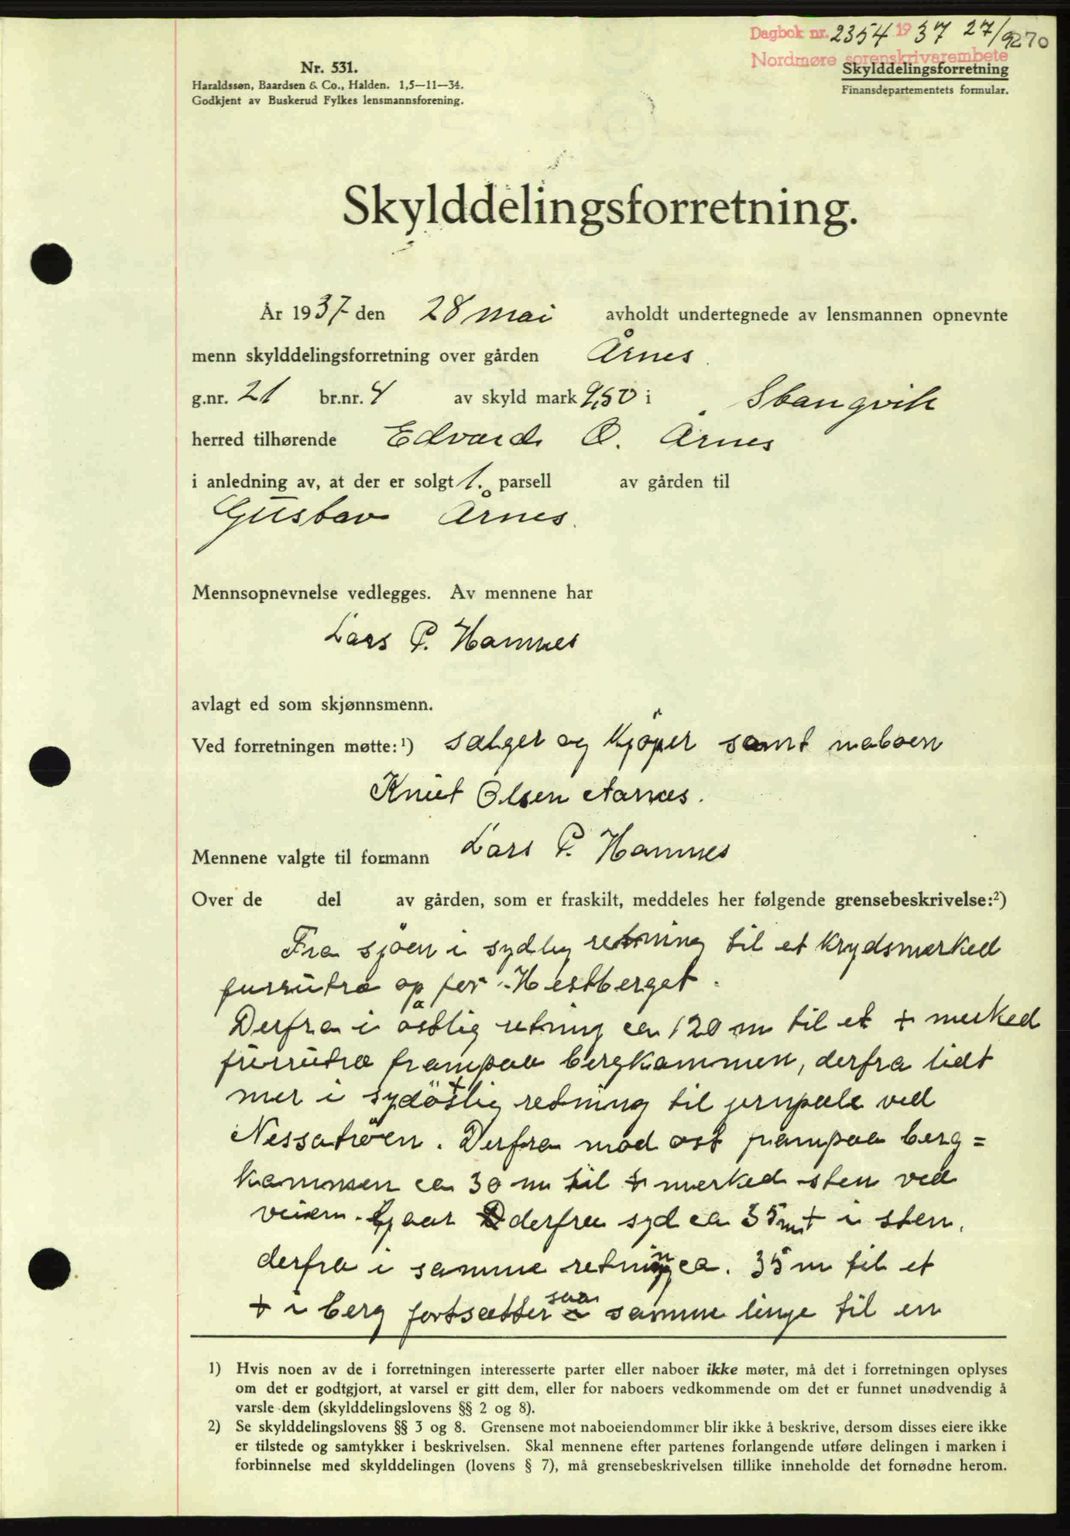 Dagbok nr. 2354 1937 27/9 270
Nordmøre sorenskriverembete
Nr. 531.
Haraldssøn, Baardsen & Co., Halden. 1,5—11—34.
Godkjent av Buskerud Fylkes lensmannsforening.
Skylddelingsforretning
Finansdepartementets formular.
Skylddelingsforretning.
År 1937 den 28 mai avholdt undertegnede av lensmannen opnevnte
menn skylddelingsforretning over gården Årnes
g.nr. 21 br.nr. 4 av skyld mark 9,50 i Stangvik
herred tilhørende Edvard O. Årnes
i anledning av, at der er solgt 1. parsell av gården til
Gustav Årnes.
Mennsopnevnelse vedlegges. Av mennene har
Lars P. Hamnes
avlagt ed som skjønnsmenn.
Ved forretningen møtte:¹) sælger og kjöper samt naboen
Knut Olsen Aarnæs.
Mennene valgte til formann Lars P. Hamnes
Over de del av gården, som er fraskilt, meddeles her følgende grensebeskrivelse:²)
Fra sjöen i sydlig retning til et krydsmerked
furrutræ op for Hestberget.
Derfra i östlig retning ca 120 m til et + merked
furrutræ frampaa bergkammen, derfra lidt
mer i sydöstlig retning til jernpæle ved
Nessatröen. Derfra mod ost frampaa berg=
kammen ca 30 m til + merked sten ved
veien. Gaar derfra syd ca 35 m + i sten,
derfra i samme retning ca. 35 m til et
+ i berg fortsætter saa samme linje til en
1) Hvis noen av de i forretningen interesserte parter eller naboer ikke møter, må det i forretningen oplyses
om det er godtgjort, at varsel er gitt dem, eller for naboers vedkommende om det er funnet unødvendig å
varsle dem (skylddelingslovens §§ 2 og 8).
2) Se skylddelingslovens §§ 3 og 8. Grensene mot naboeiendommer blir ikke å beskrive, dersom disses eiere ikke
er tilstede og samtykker i beskrivelsen. Skal mennene efter partenes forlangende utføre delingen i marken i
forbinnelse med skylddelingen (lovens § 7), må grensebeskrivelsen tillike inneholde det fornødne herom.